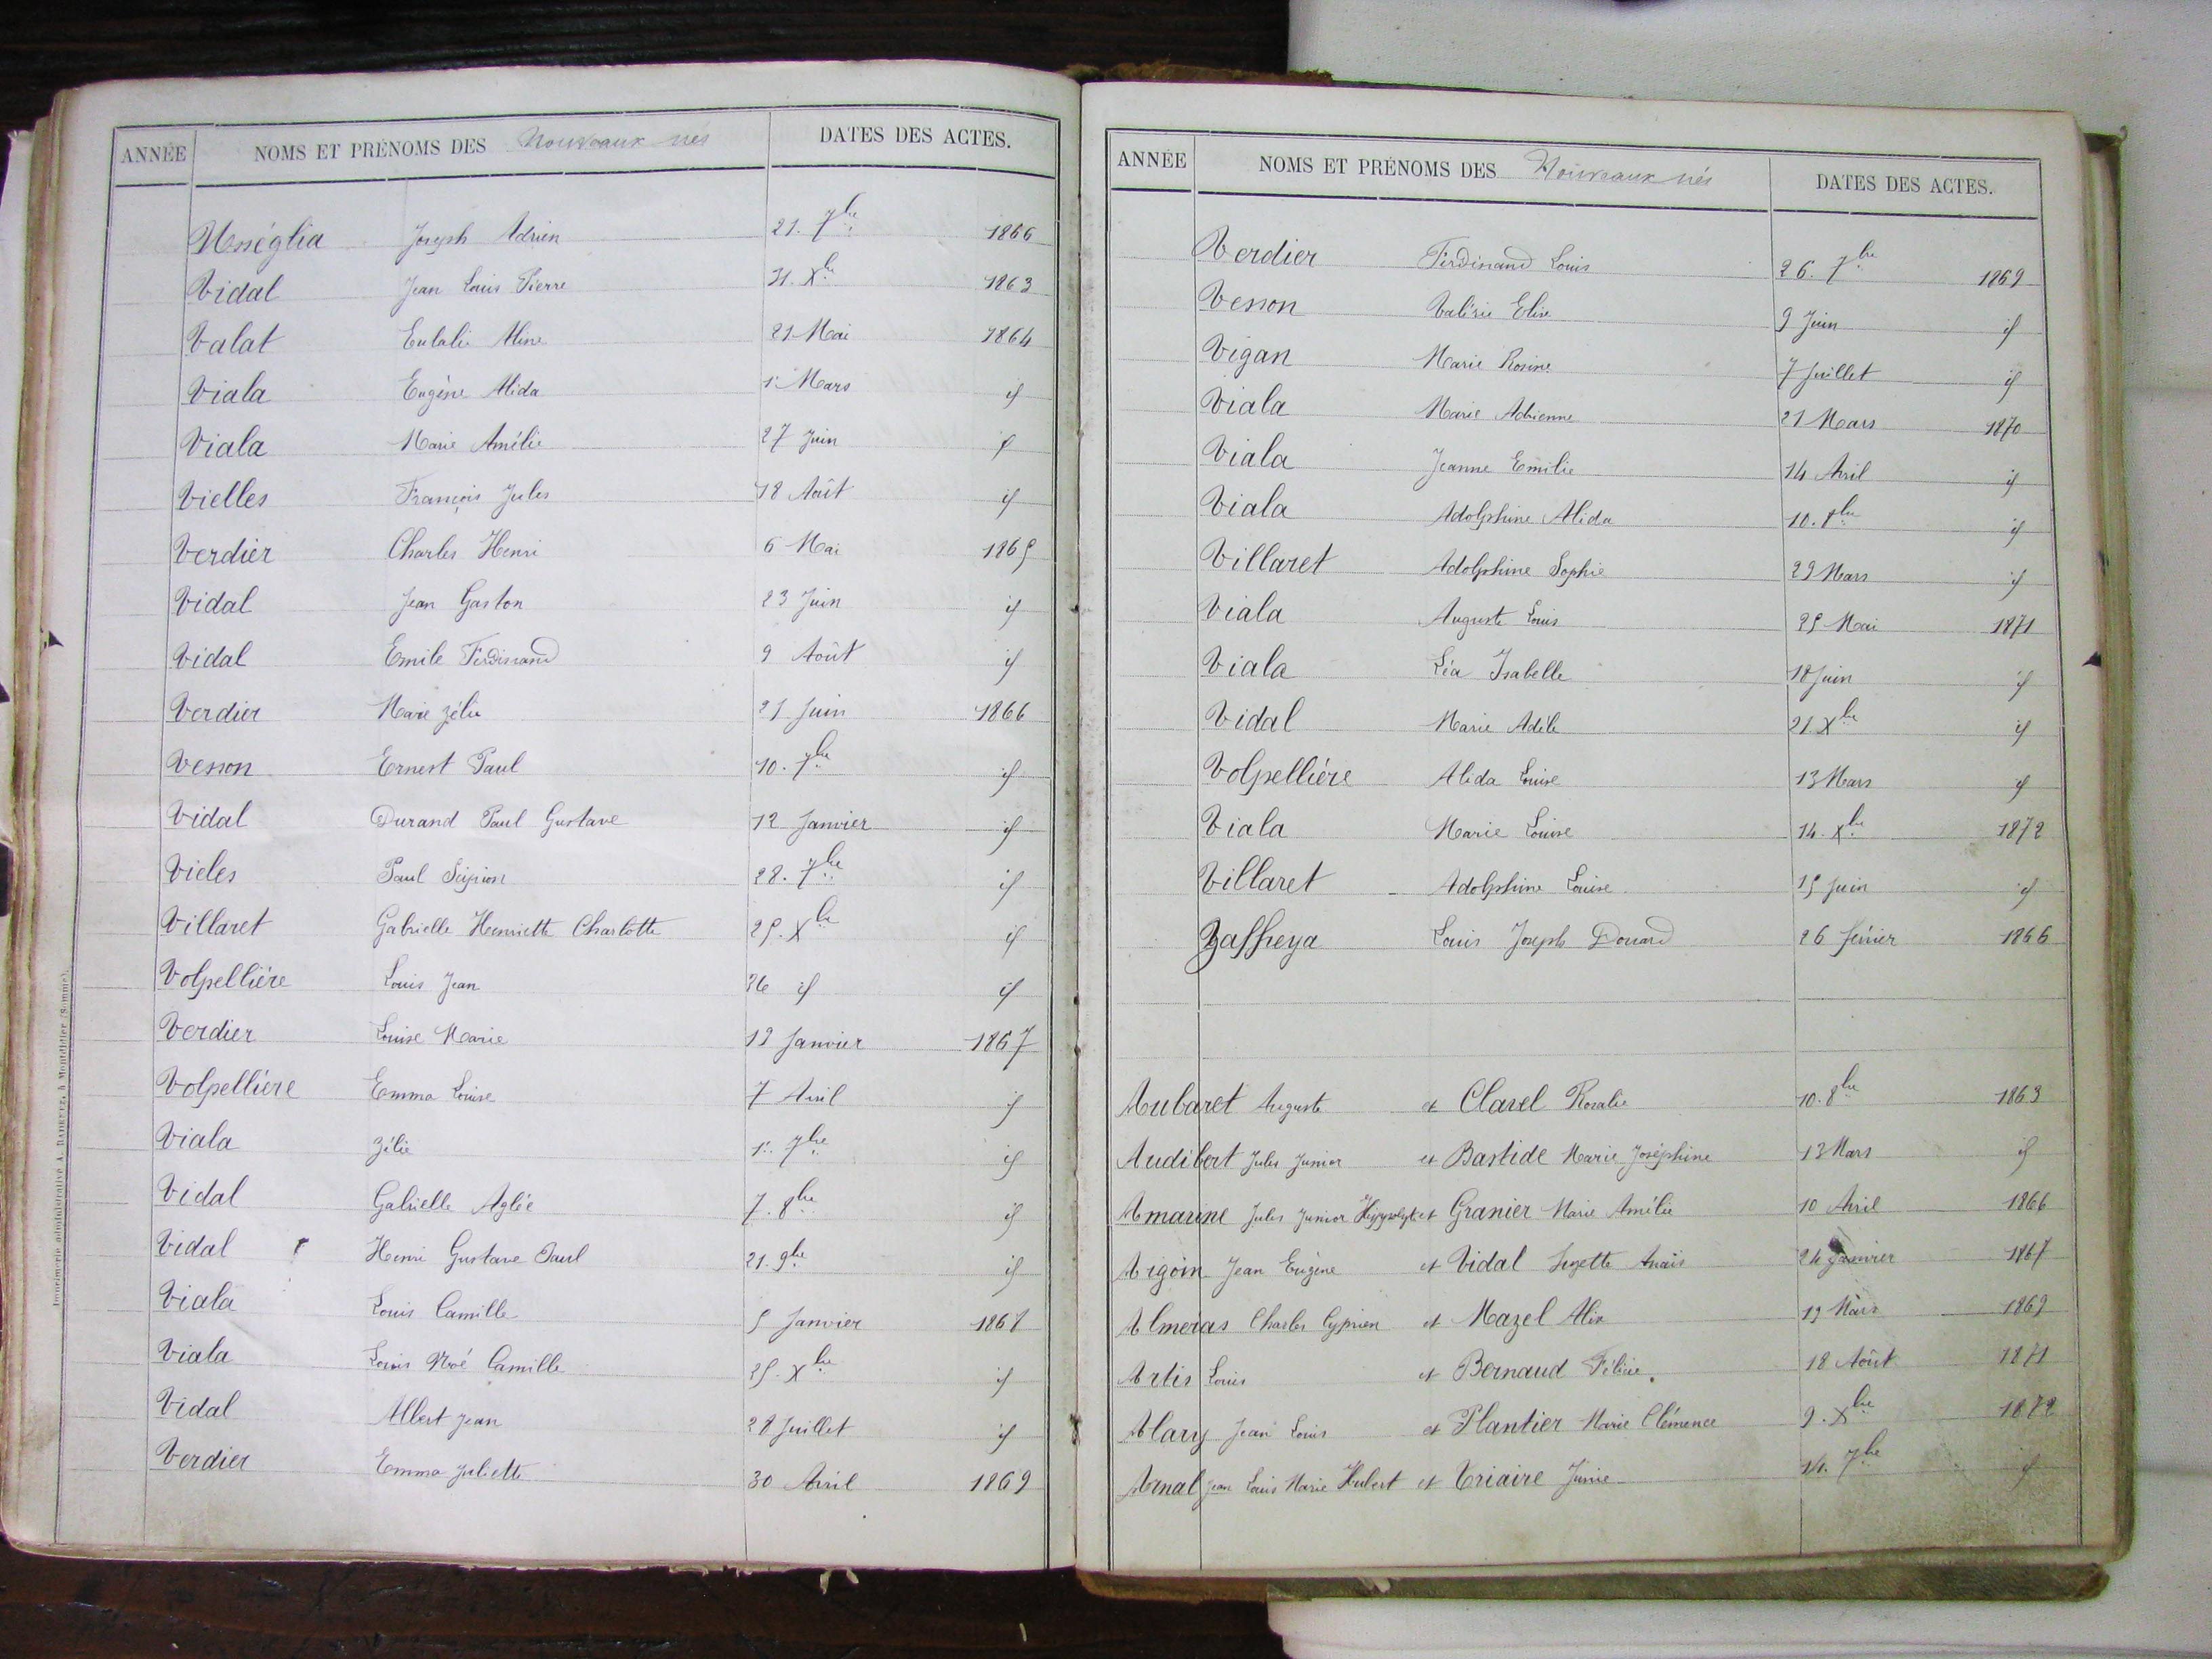 ANNÉE NOMS ET PRÉNOMS DES Nouveaux nés DATES DES ACTES.
Usséglia Joseph Adrien 21. 7bre 1866
Vidal Jean Louis Pierre 31. Xbre 1863
Valat Eulalie Aline 21 Mai 1864
Viala Eugène Alida 1er Mars id
Viala Marie Amélie 27 Juin id
Vielles François Jules 18 Août id
Verdier Charles Henri 6 Mai 1865
Vidal Jean Gaston 23 Juin id
Vidal Emile Ferdinand 9 Août id
Verdier Marie Zélie 21 Juin 1866
Vesson Ernest Paul 10. 7bre id
Vidal Durand Paul Gustave 12 Janvier id
Vieles Paul Scipion 28. 7bre id
Villaret Gabrielle Henriette Charlotte 25. Xbre id
Volpellière Louis Jean 26 id id
Verdier Louise Marie 12 Janvier 1867
Volpellière Emma Louise 7 Avril id
Viala Zélie 1er 7bre id
Vidal Gabrielle Aglée 7. 8bre id
Vidal Henri Gustave Paul 21. 9bre id
Viala Louis Camille 5 Janvier 1868
Viala Louis Noé Camille 25. Xbre id
Vidal Albert Jean 28 Juillet id
Verdier Emma Juliette 30 Avril 1869
Imprimerie administrative A. à Montdidier (Somme).
ANNÉE NOMS ET PRÉNOMS DES Nouveaux nés DATES DES ACTES.
Verdier Ferdinand Louis 26. 7bre 1869
Vesson Valérie Elise 9 Juin id
Vigan Marie Rosine 7 Juillet id
Viala Marie Adrienne 21 Mars 1870
Viala Jeanne Emilie 14 Avril id
Viala Adolphine Alida 10. 8bre id
Villaret Adolphine Sophie 29 Mars id
Viala Auguste Louis 25 Mai 1871
Viala Léa Isabelle 18 Juin id
Vidal Marie Adèle 21. Xbre id
Volpellière Alida Louise 13 Mars id
Viala Marie Louise 14. Xbre 1872
Villaret Adolphine Louise 15 Juin id
Zaffreya Louis Joseph Douard 26 février 1866
Aubaret Auguste et Clavel Rosalie 10. 8bre 1863
Audibert Jules Junior et Bastide Marie Joséphine 12 Mars id
Amarine Jules Junior Hippolyte et Granier Marie Amélie 10 Avril 1866
Arigoin Jean Eugène et Vidal Suzette Anaïs 24 Janvier 1867
Almeras Charles Cyprien et Mazel Alix 12 Mars 1869
Artis Louis et Bernaud Félicie. 18 Août 1871
Alary Jean Louis et Plantier Marie Clémence 9. Xbre 1872
Arnal Jean Louis Marie Hubert et Triaire Junie 14. 7bre id